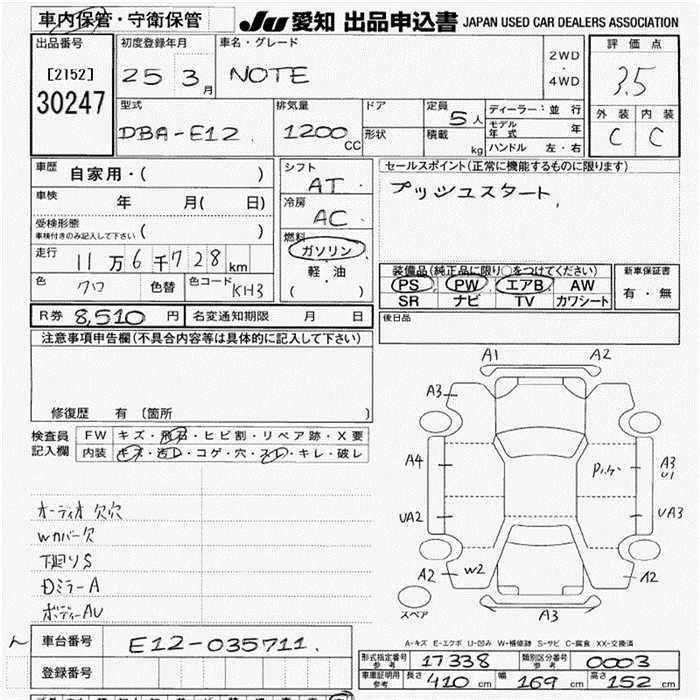 車内保管・守衛保管
JU 愛知 出品申込書 JAPAN USED CAR DEALERS ASSOCIATION
出品番号
[2152]
30247
初度登録年月
25 3月
車名・グレード
NOTE
2WD
・
4WD
評価点
3.5
外装 内装
C C
型式
DBA-E12
排気量
1200 cc
ドア
形状
定員
5人
積載
kg
ディーラー:並 行
モデル年式 年
ハンドル 左・右
車歴 自家用・( )
車検 年 月( 日)
受検形態
車検付きのみ記入して下さい ( )
走行 11万6千728km
色 クロ 色替 色コード KH3
シフト
AT
冷房
AC
燃料
ガソリン
軽・油
( )
セールスポイント(正常に機能するものに限ります)
プッシュスタート
装備品(純正品に限り○をつけてください)
PS PW エアB AW
SR ナビ TV カワシート
新車保証書
有・無
R券 8,510 円 名変通知期限 月 日
後日品
注意事項申告欄(不具合内容等は具体的に記入して下さい)
修復歴 有 〔箇所 〕
検査員
記入欄
FW キズ・飛石・ヒビ割・リペア跡・X要
内装 キズ・汚レ・コゲ・穴・スレ・キレ・破レ
オーディオ欠穴
Wカバー欠
下廻りS
Dミラー A
ボディー AU
A1 A2
A3
A4
A3
U1
UA2
UA3
A2 W2
A2
スペア
A3
A-キズ E-エクボ U-凹み W-補修跡 S-サビ C-腐食 XX-交換済
車台番号 E12-035711
登録番号
形式指定番号
参考
17338
類別区分番号
参考
0003
車庫証明用
参考
長さ 410 cm 幅 169 cm 高さ 152 cm